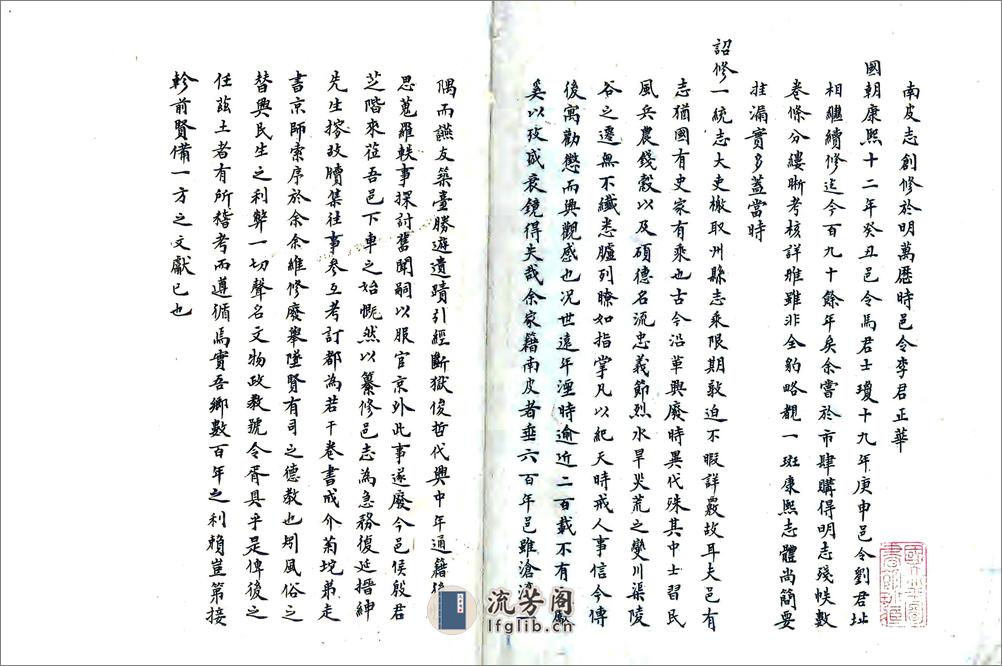 南皮志創修於明萬歷時邑令李君正華
國朝康熙十二年癸丑邑令馬君士瓊十九年庚申邑令劉君址
相繼續修迄今百九十餘年矣余嘗於市肆購得明志殘帙數
卷條分縷晰考核詳雅雖非全豹略覩一斑康熙志體尚簡要
挂漏實多蓋當時
詔修一統志大吏檄取州縣志乘限期敦迫不暇詳覈故耳夫邑有
志猶國有史家有乘也古今沿革興廢時異代殊其中士習民
風兵農錢穀以及碩德名流忠義節烈水旱災荒之變川渠陵
谷之遷無不纖悉臚列瞭如指掌凡以紀天時戒人事信今傳
後寓勸懲而興觀感也況世遠年湮時逾近二百載不有文獻
奚以攷盛衰鏡得失哉余家籍南皮者垂六百年邑雖滄海一
隅而讌友築臺勝遊遺蹟引經斷獄俊哲代興中年通籍後
思蒐羅軼事探討舊聞嗣以服官京外此事遂廢今邑侯殷君
芝階來莅吾邑下車之始慨然以纂修邑志為急務復延搢紳
先生搜攷牘集往事參互考訂都為若干卷書成介菊垞弟走
書京師索序於余余維修廢舉墜賢有司之德教也矧風俗之
替興民生之利弊一切聲名文物政教號令胥具乎是俾後之
任茲土者有所稽考而遵循焉實吾鄉數百年之利賴豈第接
軫前賢備一方之文獻已也
流芳阁
lfglib.cn